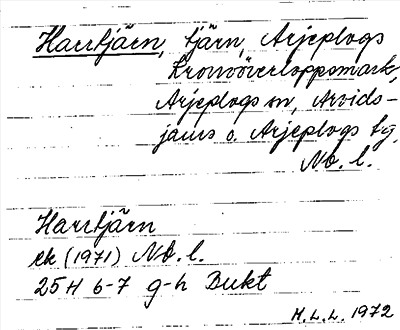 Harrtjärn, tjärn, Arjeplogs
kronoöverloppsmark,
Arjeplogs sn, Arvids-
jaurs o. Arjeplogs tg,
Nb. l.
Harrtjärn
ek (1971) Nb. l.
25H 6-7 g-h Bukt
H.L.L. 1972